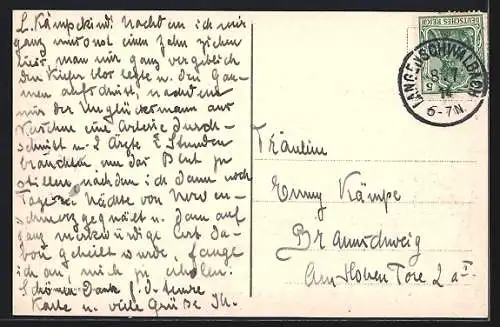 L. Kämpekind! Nachdem ich mir
ganz umsonst einen Zahn ziehen
ließ, man mir ganz vergeblich
den Kiefer blos legte u. den Gau-
men aufschnitt, nachdem
mir der Unglücksmann aus
Versehen eine Arterie durch-
schnitt u. 2 Ärzte 2 Stunden
brauchten um das Blut zu
stillen, nachdem ich dann noch
Tage u. Nächte von Nerven-
schmerz gequält u. dann auf
ganz merkwürdige Art da-
von geheilt wurde, fange
ich an, mich zu erholen.
Schönen Dank f. Ihre
Karte u. viele Grüße Ih.
DEUTSCHES REICH
LANGENSCHWALBACH
8.7.
6-7N.
Fräulein
Enny Kämpe
Braunschweig
Am Hohen Tore 2 a I